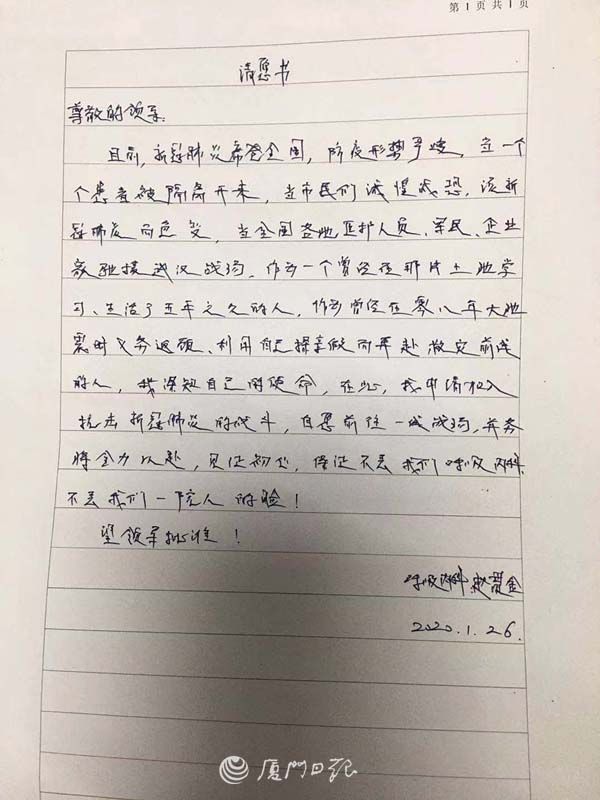 第 1 页 共 1 页
请愿书
尊敬的领导:
目前,新冠肺炎席卷全国,防疫形势严峻,当一个
个患者被隔离开来,当市民们诚惶诚恐,谈新
冠肺炎而色变,当全国各地医护人员、军民、企业
家驰援武汉战场,作为一个曾经在那片土地学
习、生活了五年之久的人,作为曾经在零八年大地
震时义务返预、利用自己探亲假而再赴救灾前线
的人,我深知自己的使命,在此,我申请加入
抗击新冠肺炎的战斗,自愿前往一线战场,并务
将全力以赴,见证初心,保证不丢我们呼吸内科、
不丢我们一院人的脸!
望领导批准!
呼吸内科
2020.1.26.
厦门日报